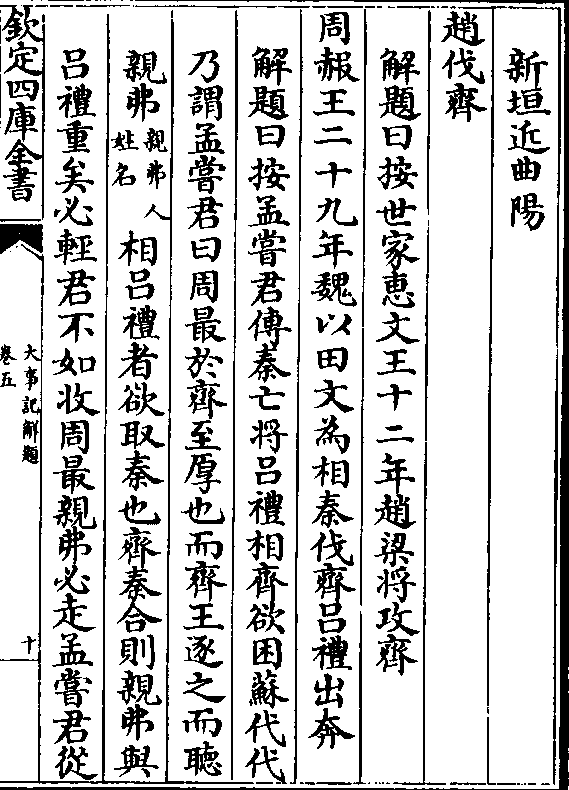 新垣近曲陽
趙伐齊
解題曰按世家惠文王十二年趙梁将攻齊
周赧王二十九年魏以田文為相秦伐齊吕禮出奔
解題曰按孟嘗君傳秦亡将吕禮相齊欲困蘇代代
乃謂孟嘗君曰周最於齊至厚也而齊王逐之而聽
親弗親弗人姓名相吕禮者欲取秦也齊秦合則親弗與
吕禮重矣必輕君君不如收周最親弗必走孟嘗君從
欽定四庫全書
大事記解題
卷五
十